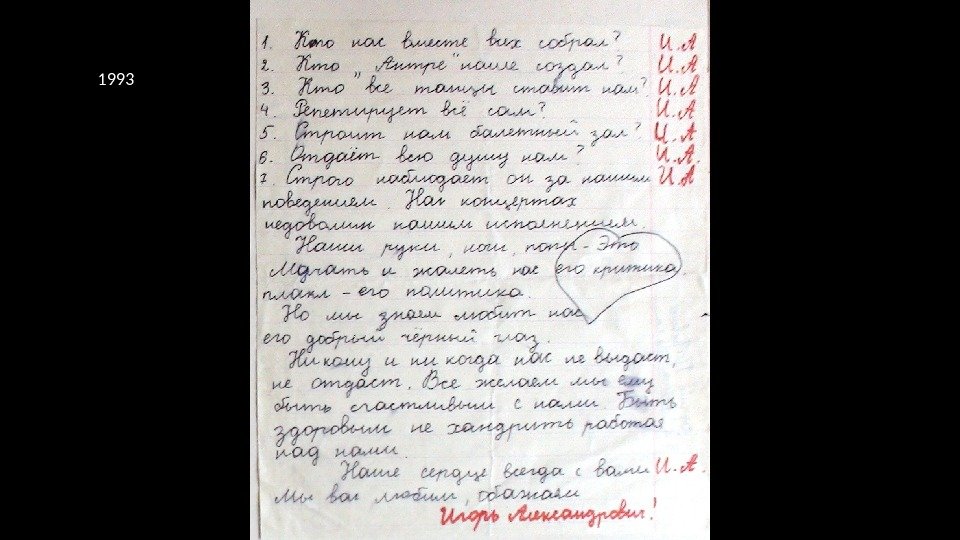 1993
1. Кто нас вместе всех собрал? И.А
2. Кто „Антре" наше создал? И.А
3. Кто все танцы ставит нам? И.А
4. Репетирует всё сам? И.А
5. Строит нам балетный зал? И.А
6. Отдаёт всю душу нам? И.А.
7. Строго наблюдает он за нашим И.А
поведением. На концертах
недоволин нашим исполнением.
Наши руки, ноги, попы - Это
его критика.
Молчать и жалеть нас
плакл - его политика.
Но мы знаем любит нас
его добрый чёрный глаз.
Никому и никогда нас не выдаст,
не отдаст. Все желаем мы ему
быть счастливым с нами. Быть
здоровым не хандрить работая
над нами.
Наше сердце всегда с вами И.А.
Мы вас любим, обажаем
Игорь Александрович!